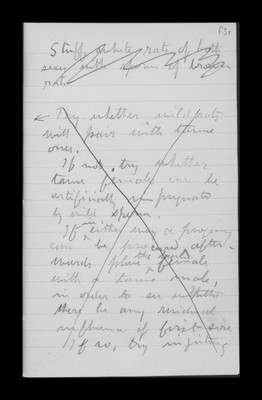 Stuff white rats of both
sexes with sperm of brown
rats.
Try whether wild rats
will pair with tame
ones.
If not, try whether
tame females can be
artificially impregnated
by wild sperm.
If in either way a progeny
can be procured, after-
wards place the same female
with a tame male,
in order to see whether
there be any residual
influence of first sire
If so, try injecting